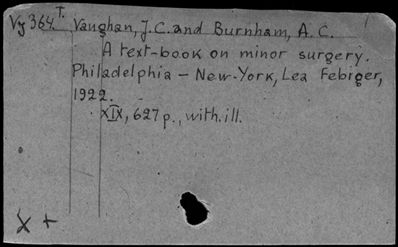 Vy 364. T. Vaughan, J.C. and Burnham, A.C.
A text-book on minor surgery.
Philadelphia – New-York, Lea Febiger,
1922.
XIX, 627 p., with. ill.
X +